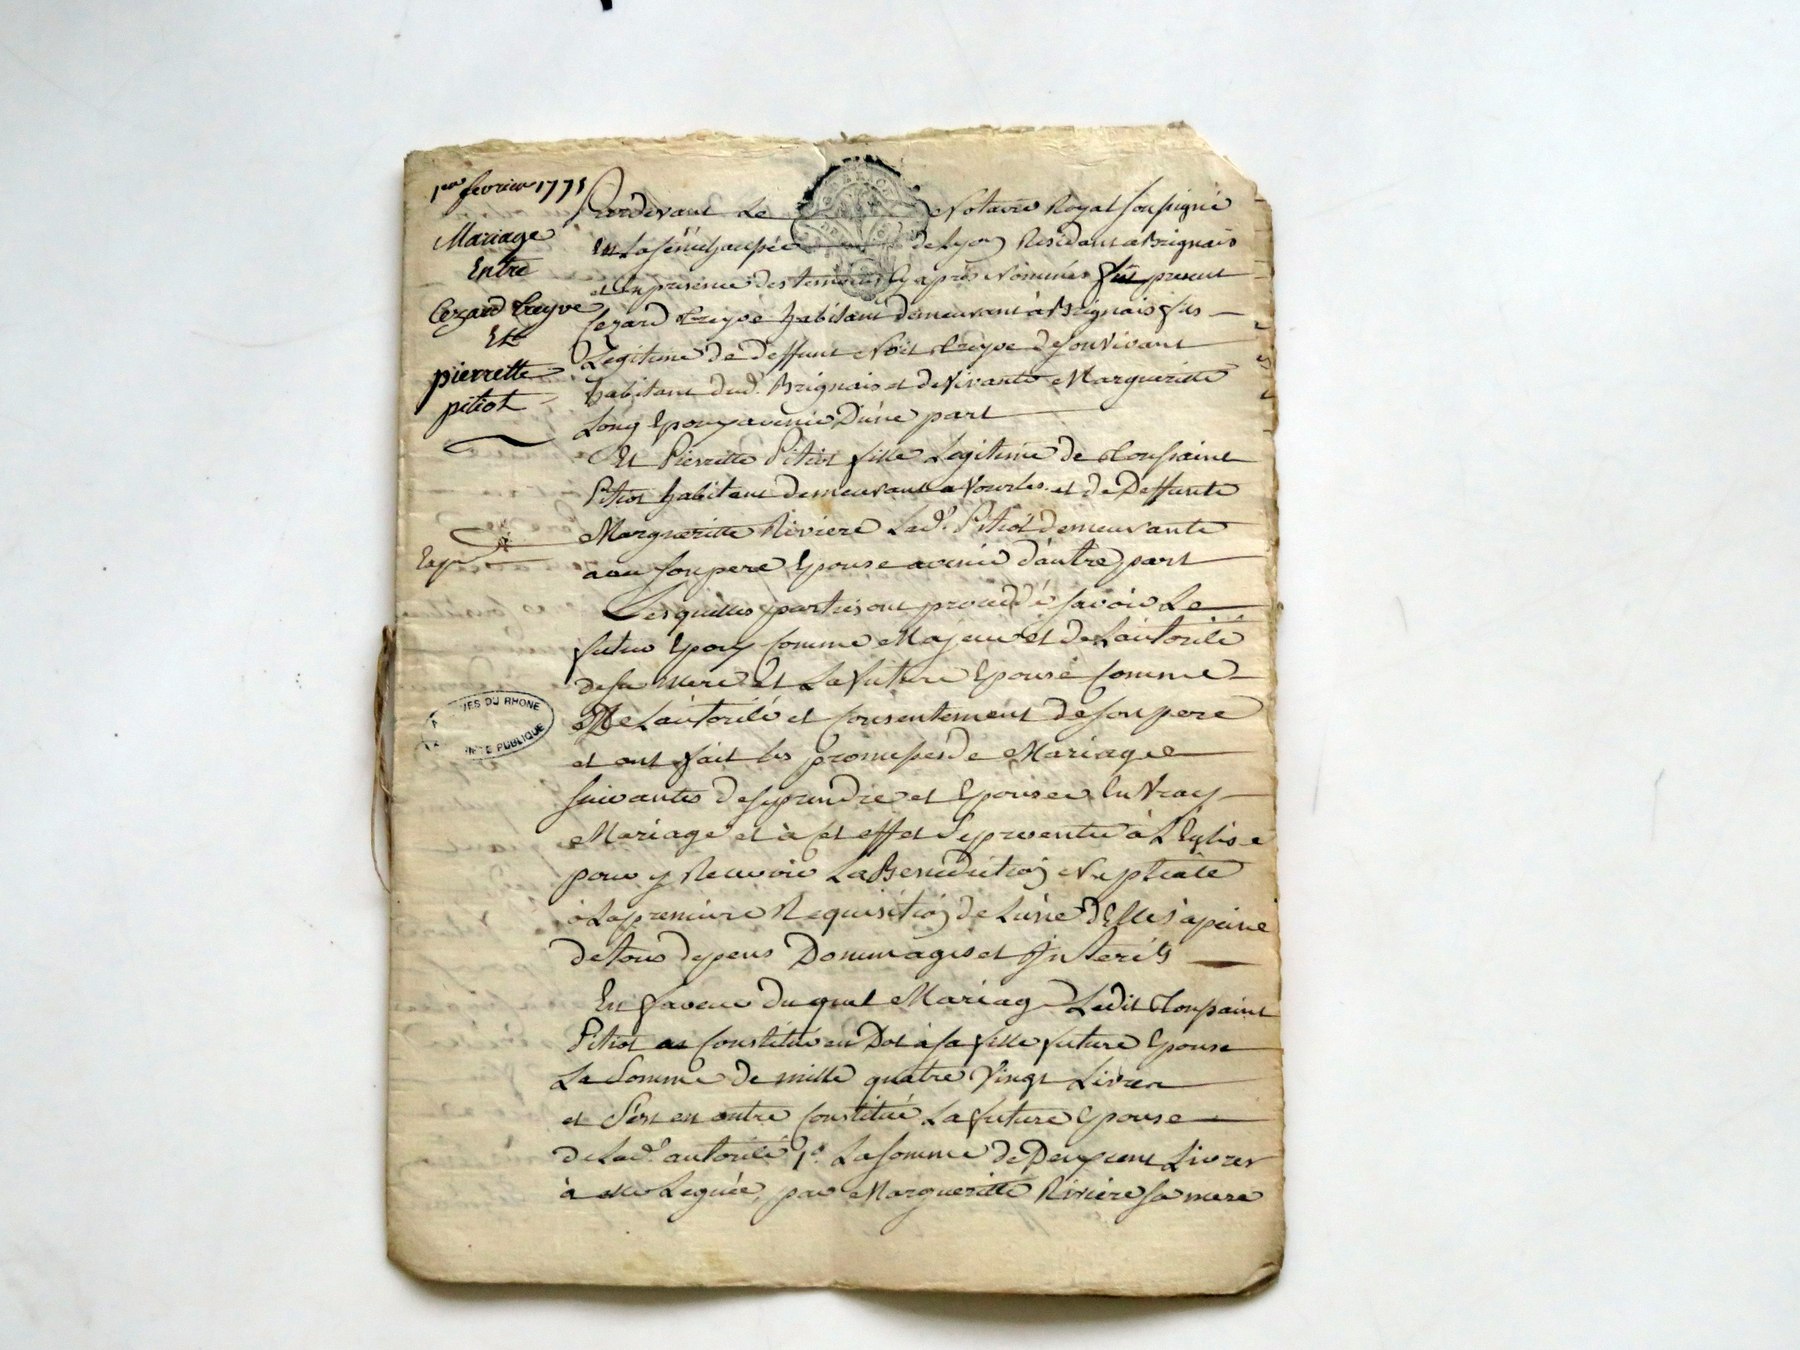 1er fevrier 1775
Mariage
Entre
Cezard Treyve
Et
pierrette
pitiot
Exp
ARCHIVES DU RHONE
PROPRIETE PUBLIQUE
Pardevant Le Notaire Royal soussigné
En La sénéchaussée de Lyon Residant a Brignais
et En presence des temoins Cy après Nommés fut present
Cezard Treyve habitant demeurant à Brignais fils
Legitime de deffunt Noël Treyve de son Vivant
habitant dud. Brignais et de Vivante Margueritte
Long Epoux avenir D'une part
Et Pierrette Pitiot fille Legitime de Toussaint
Pitiot habitant demeurant a Vourles et de Deffunte
Margueritte Riviere Lad. Pitiot demeurante
avec son pere Epouse avenir d'autre part
Lesquelles parties ont procedé savoir Le
futur Epoux comme Majeur et de L'autorité
de sa mere et La future Epouse comme
De L'autorité et consentement de son pere
et ont fait les promesses de Mariage
suivantes de se prendre et Epouser En Vray
Mariage et à cet effet se presenter à L'Eglise
pour y Recevoir La Benediction Nuptiale
à La premiere Requisition de L'une D'Elles a peine
de tous depens Dommages et Interêts
En faveur du quel Mariage Ledit Toussaint
Pitiot a constitué en Dot à sa fille future Epouse
La Somme de mille quatre Vingt Livres
et s'est en outre constitué La future Epouse
de Lad. autorité 1° La somme de Deux cent Livres
à elle Leguée, par Margueritte Riviere sa mere